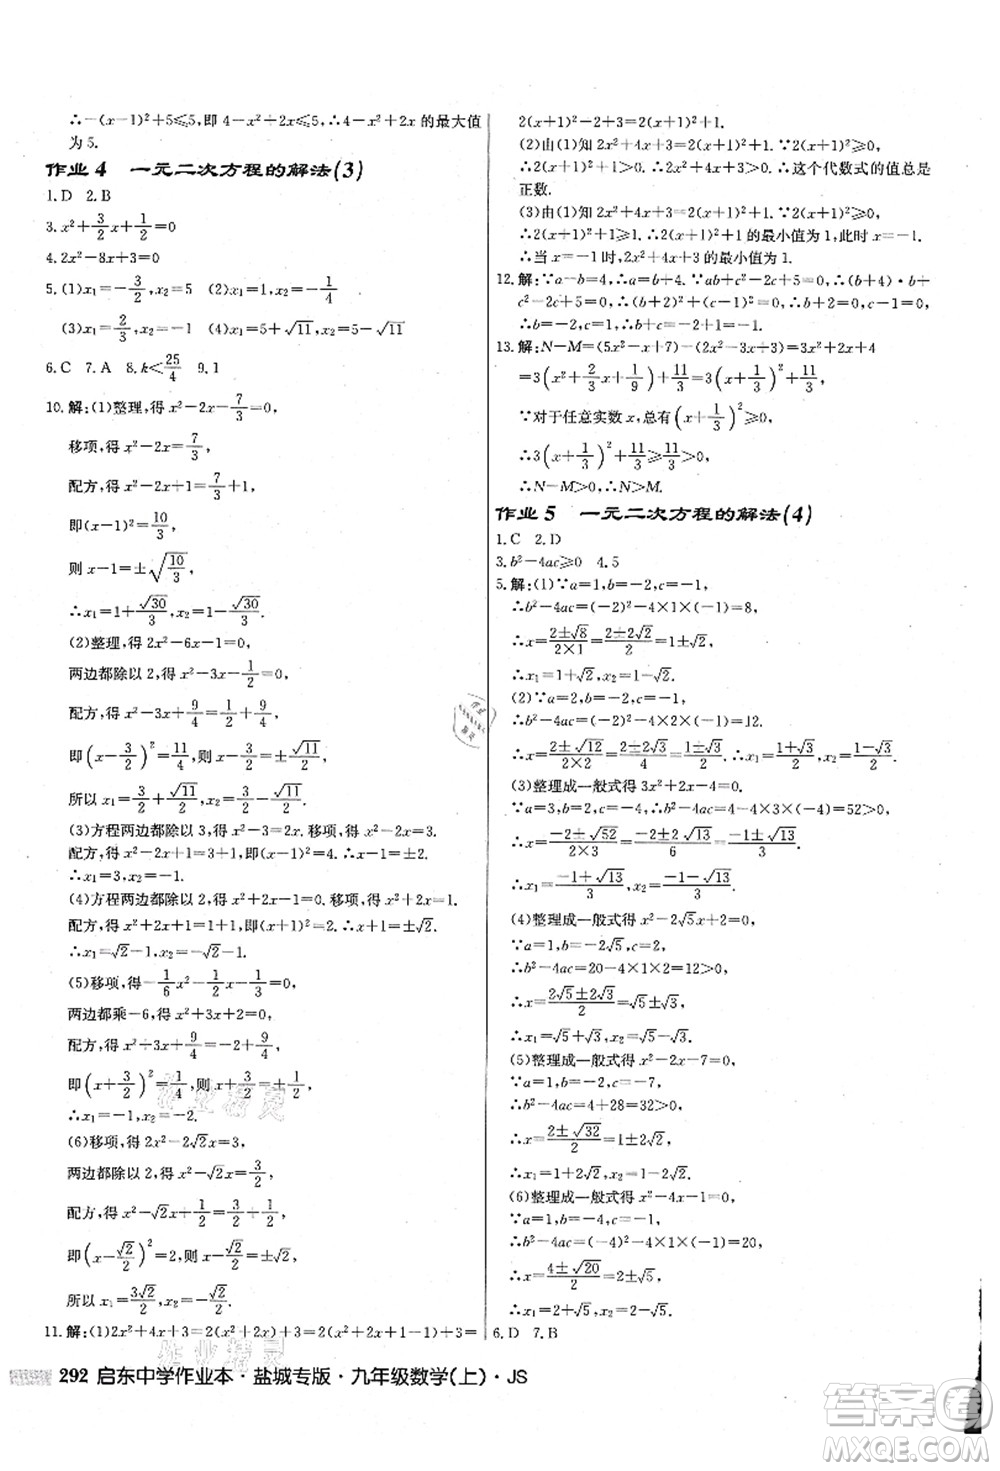 ∴-(x-1)²+5≤5,即 4-x²+2x≤5,∴4-x²+2x 的最大值
为 5.
作业 4 一元二次方程的解法(3)
1. D 2. B
3. x²+3/2x+1/2=0
4. 2x²-8x+3=0
5. (1)x₁=-3/2,x₂=5 (2)x₁=x₂=-1/4
(3)x₁=2/3,x₂=-1 (4)x₁=5+√11,x₂=5-√11
6. C 7. A 8. k<25/4 9. 1
10. 解:(1)整理,得 x²-2x-7/3=0,
移项,得 x²-2x=7/3,
配方,得 x²-2x+1=7/3+1,
即(x-1)²=10/3,
则 x-1=±√(10/3),
∴x₁=1+√30/3,x₂=1-√30/3.
(2)整理,得 2x²-6x-1=0,
两边都除以 2,得 x²-3x-1/2=0,
配方,得 x²-3x+9/4=1/2+9/4,
即(x-3/2)²=11/4,则 x-3/2=±√11/2,
所以 x₁=3/2+√11/2,x₂=3/2-√11/2.
(3)方程两边都除以 3,得 x²-3=2x. 移项,得 x²-2x=3.
配方,得 x²-2x+1=3+1,即(x-1)²=4. ∴x-1=±2.
∴x₁=3,x₂=-1.
(4)方程两边都除以 2,得 x²+2x-1=0. 移项,得 x²+2x=1.
配方,得 x²+2x+1=1+1,即(x+1)²=2. ∴x+1=±√2.
∴x₁=√2-1,x₂=-√2-1.
(5)移项,得-1/6x²-1/2x-1/3=0.
两边都乘-6,得 x²+3x+2=0.
配方,得 x²+3x+9/4=-2+9/4,
即(x+3/2)²=1/4,则 x+3/2=±1/2,
∴x₁=-1,x₂=-2.
(6)移项,得 2x²-2√2x=3,
两边都除以 2,得 x²-√2x=3/2,
配方,得 x²-√2x+1/2=3/2+1/2,
即(x-√2/2)²=2,x-√2/2=±√2,
所以 x₁=3√2/2,x₂=-√2/2.
11. 解:(1)2x²+4x+3=2(x²+2x)+3=2(x²+2x+1-1)+3=
292 启东中学作业本·盐城专版·九年级数学(上)·JS
2(x+1)²-2+3=2(x+1)²+1.
(2)由(1)知 2x²+4x+3=2(x+1)²+1. ∵2(x+1)²≥0,
∴2(x+1)²+1>0. ∴2x²+4x+3>0. ∴这个代数式的值总是
正数.
(3)由(1)知 2x²+4x+3=2(x+1)²+1. ∵2(x+1)²≥0,
∴2(x+1)²+1≥1. ∴2(x+1)²+1 的最小值为 1,此时 x=-1.
∴当 x=-1 时,2x²+4x+3 的最小值为 1.
12. 解:∵a-b=4,∴a=b+4. ∵ab+c²-2c+5=0,∴(b+4)·b+
c²-2c+5=0,∴(b+2)²+(c-1)²=0,∴b+2=0,c-1=0,
∴b=-2,c=1.
13. 解:N-M=(5x²-x+7)-(2x²-3x+3)=3x²+2x+4
=3(x²+2/3x+1/9)+11/3=3(x+1/3)²+11/3.
∵对于任意实数 x,总有(x+1/3)²≥0,
∴3(x+1/3)²+11/3≥11/3>0.
∴N-M>0. ∴N>M.
作业 5 一元二次方程的解法(4)
1. C 2. D
3. b²-4ac≥0 4. 5
5. 解:(1)∵a=1,b=-2,c=-1,
∴b²-4ac=(-2)²-4×1×(-1)=8,
∴x=(2±√8)/(2×1)=(2±2√2)/2=1±√2,
∴x₁=1+√2,x₂=1-√2.
(2)∵a=1,b=-2,c=-2,
∴b²-4ac=(-2)²-4×1×(-2)=12.
∴x=(2±√12)/2=(2±2√3)/2=1±√3. ∴x₁=1+√3,x₂=1-√3.
(3)整理成一般式得 3x²+2x-4=0.
∵a=3,b=2,c=-4,∴b²-4ac=4-4×3×(-4)=52>0,
∴x=(-2±√52)/(2×3)=(-2±2√13)/6=(-1±√13)/3.
∴x₁=(-1+√13)/3,x₂=(-1-√13)/3.
(4)整理成一般式得 x²-2√5x+2=0.
∵a=1,b=-2√5,c=2,
∴b²-4ac=20-4×1×2=12>0,
∴x=(2√5±2√3)/2=√5±√3,
∴x₁=√5+√3,x₂=√5-√3.
(5)整理成一般式得 x²-2x-7=0,
∵a=1,b=-2,c=-7,
∴b²-4ac=4+28=32>0,
∴x=(2±√32)/2=1±2√2,
∴x₁=1+2√2,x₂=1-2√2.
(6)整理成一般式得 x²-4x-1=0,
∵a=1,b=-4,c=-1,
∴b²-4ac=(-4)²-4×1×(-1)=20,
∴x=(4±√20)/2=2±√5,
∴x₁=2+√5,x₂=2-√5.
6. D 7. B
作业精灵
作业精灵
答案圈
MXQE.COM